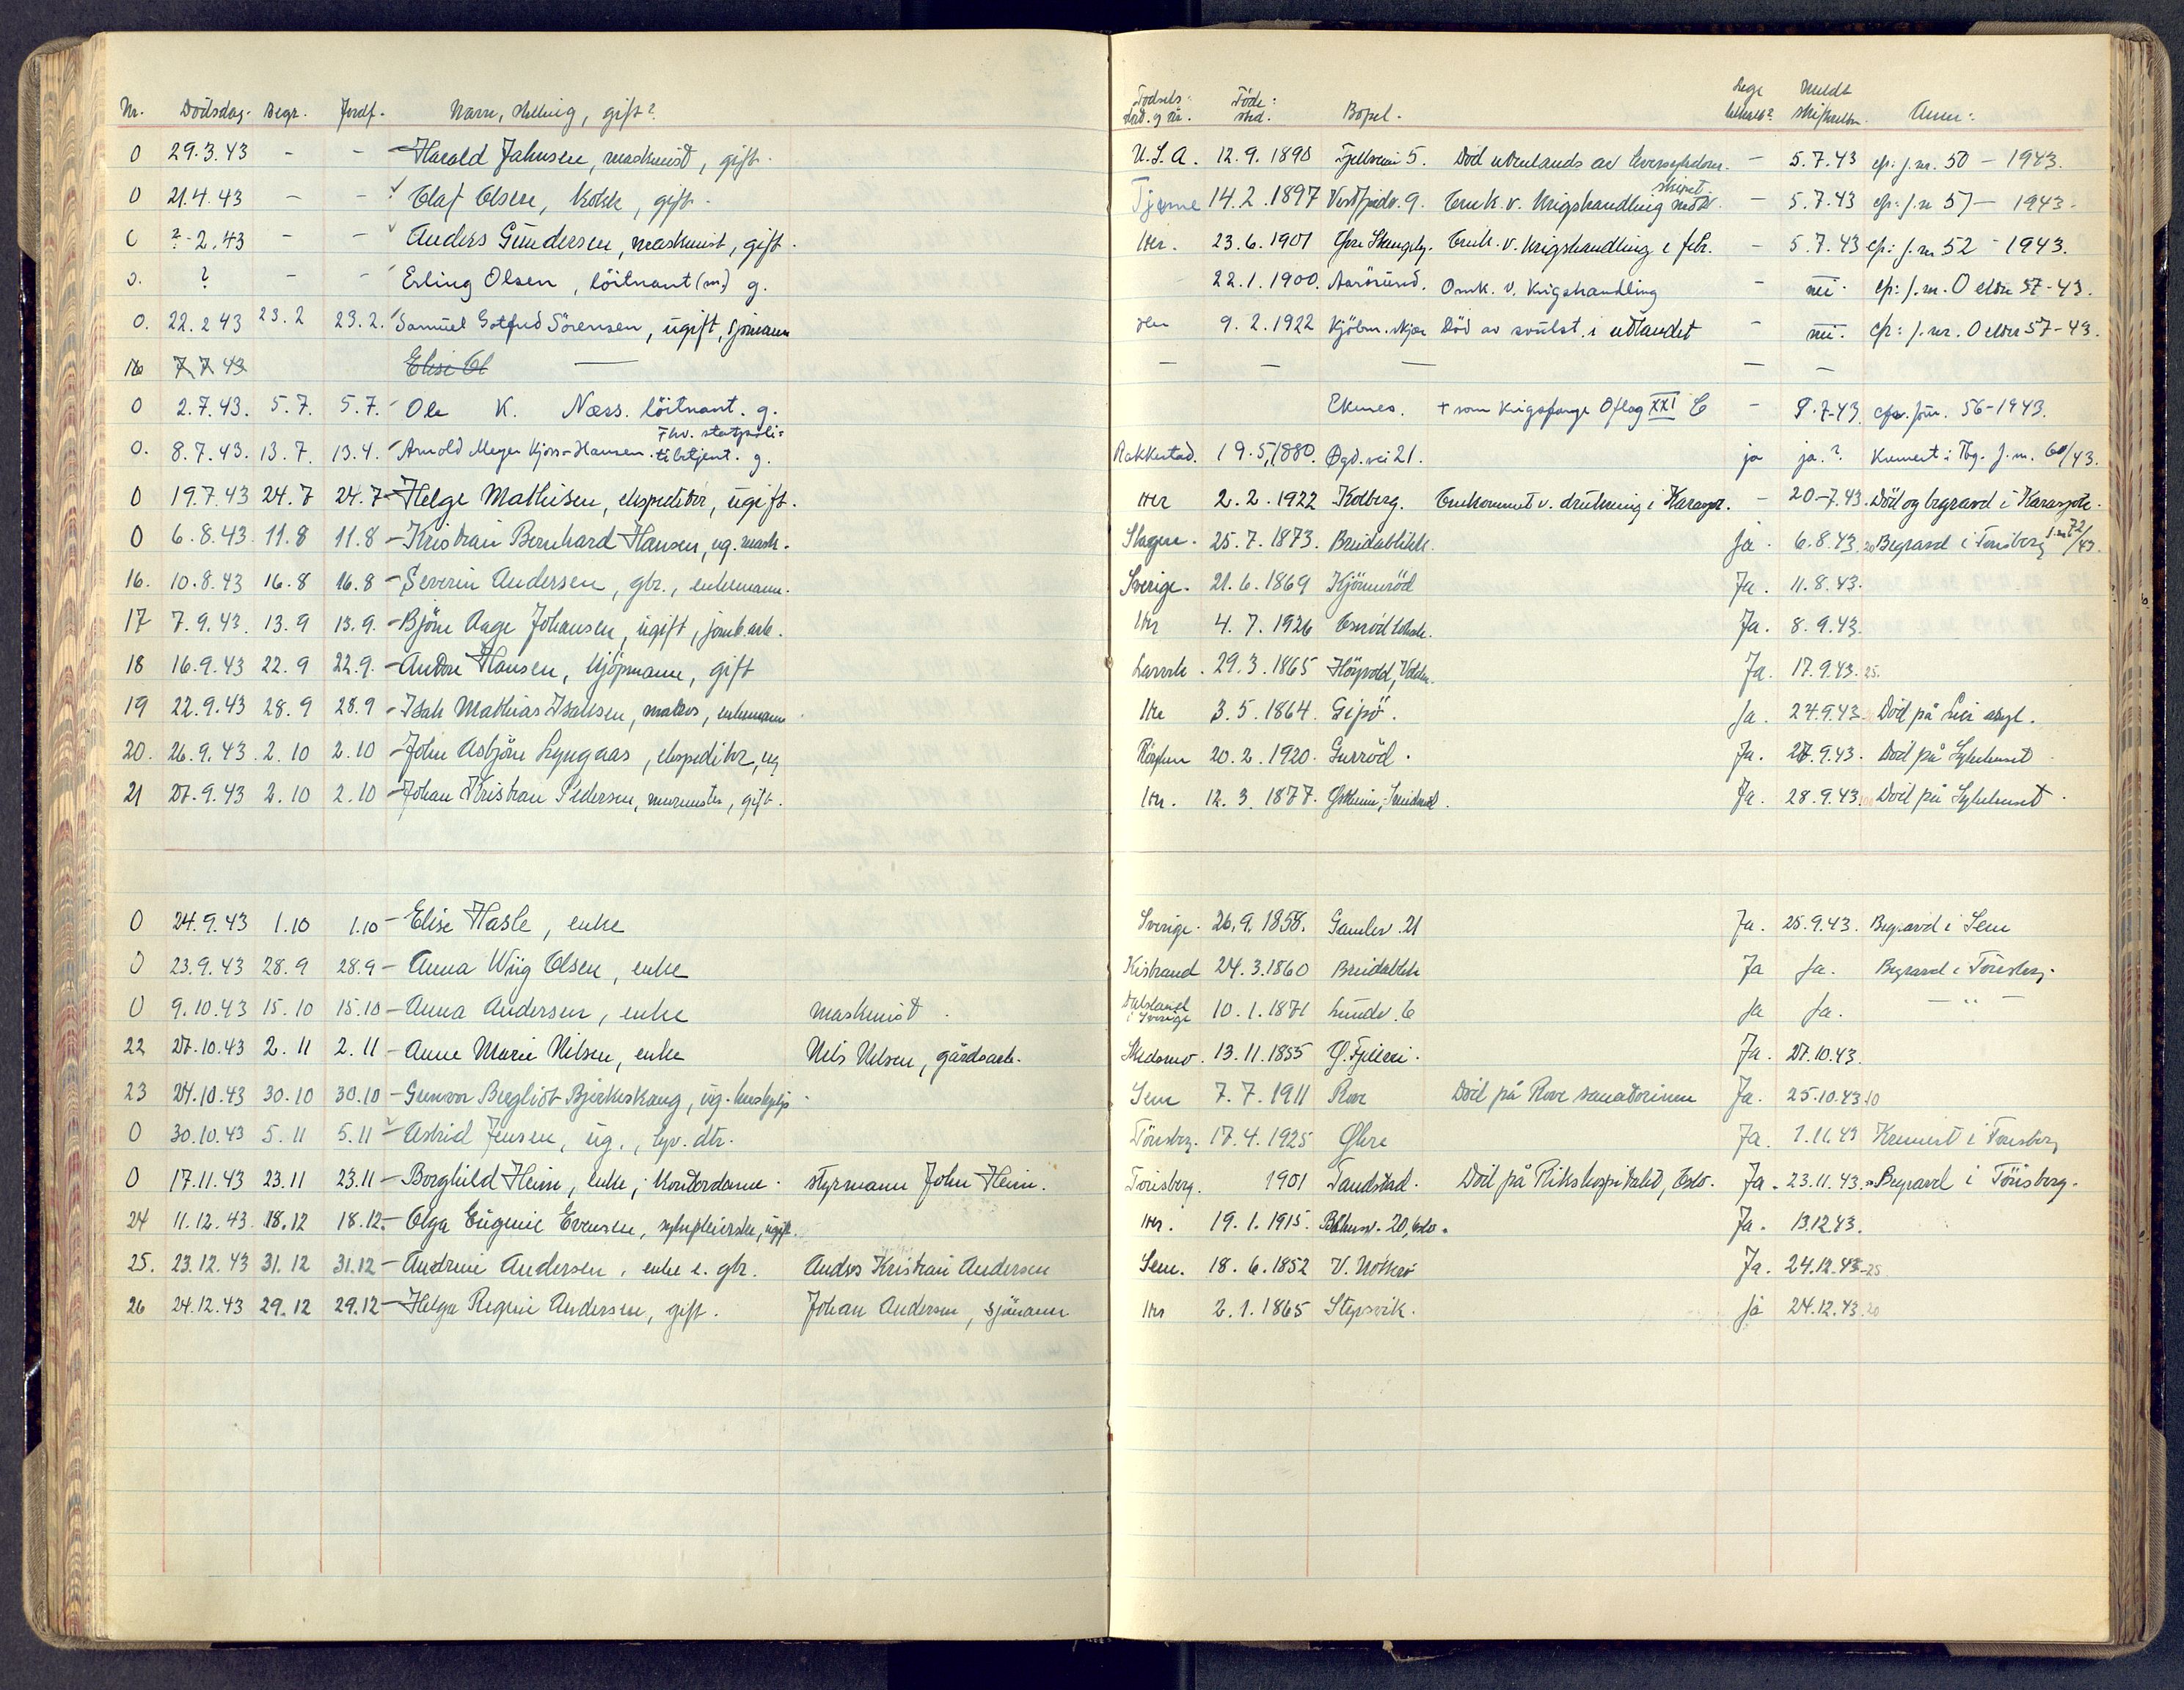 Nr. Dödsdag. Begr. Jordf. Navn, stilling, gift?
0 29.3.43 - - Harald Jahnsen, maskinist, gift.
0 21.4.43 - - Olaf Olsen, kokk, gift.
0 ?-2.43 - - Anders Gundersen, maskinist, gift.
0. ? - - Erling Olsen, löitnant (m.) g.
0. 22.2 43 23.2 23.2. Samuel Gotfred Sörensen, ugift, sjömann
16 7.7 43 Elise Ol —
0 2.7.43. 5.7. 5.7. Ole K. Næss. löitnant. g.
Fhv. statspoli-
0. 8.7.43. 13.7. 13.4. Arnold Meyer Kjoss-Hansen. tibetjent. g.
0 19.7.43 24.7 24.7 - Helge Mathisen, ekspeditör, ugift.
0 6.8.43. 11.8 11.8 - Kristian Bernhard Hansen, ug. mask.
16. 10.8.43 16.8 16.8 - Severin Andersen, gbr., enkemann.
17 7.9.43. 13.9 13.9. - Björn Aage Johansen, ugift, jernb.arb.
18 16.9.43 22.9 22.9. - Andor Hansen, kjöpmann, gift
19 22.9.43 28.9 28.9 - Isak Mathias Isaksen, matros, enkemann
20. 26.9.43. 2.10 2.10 - John Asbjörn Lyngaas, ekspeditör, ug
21 27.9.43 2.10 2.10 - Johan Kristian Pedersen, murmester, gift.
0 24.9.43 1.10 1.10 - Elise Hasle, enke
0 23.9.43 28.9 28.9 - Anna Wiig Olsen, enke
0 9.10.43 15.10 15.10 - Anna Andersen, enke maskinist
22 27.10.43 2.11 2.11 - Anne Marie Nilsen, enke Nils Nilsen, gårdsarb.
23 24.10.43 30.10 30.10 - Gunvor Bergliot Bjerkeskaug, ug. hushjelp
0 30.10.43 5.11 5.11 Astrid Jensen, ug., dtr.
0 17.11.43 23.11 23.11 - Borghild Heim, enke, kontordame. styrmann John Heim.
24 11.12.43 18.12 18.12. - Olga Eugenie Evensen, sykepleierske, ugift.
25. 23.12.43 31.12 31.12 - Andrine Andersen, enke e. gbr. Anders Kristian Andersen
26 24.12.43 29.12 29.12 - Helga Regine Andersen, gift. Johan Andersen, sjömann
Födsels- Föde: Lege Meldt
sted. og år. sted. Bopel. behandl? skifteretten. Anm:
U.S.A. 12.9.1890 Fjellveien 5. Död utenlands av - 5.7.43 cfr: j.nr. 50 - 1943.
skipet
Tjøme 14.2.1897 Vestfjordv. 9. Omk. v. krigshandling mot - 5.7.43 cfr: j.nr 51 - 1943.
Her. 23.6.1901 Øvre Omk. v. krigshandling i febr. - 5.7.43 cfr: j.nr 52 - 1943.
22.1.1900. Aarösund. Omk. v. krigshandling - nei. cfr: j.nr. 0 eldre 57-43.
Her 9.2.1922 Död av svulst i utlandet - nei. cfr: j.nr. 0 eldre 57-43.
— — — — —
Eknes. + som krigsfange Oflag XXI C - 8.7-43. cfr. jour. 56-1943.
Rakkestad. 19.5.1880. Øgd.vei 21. ja ja.? Kremert i Tbg. j.nr. 60/43.
Her 2.2.1922 Kolberg. Omkommet v. drukning i Karasjok. - 20-7.43. Död og begravd i Karasjok.
Slagen. 25.7.1873. Breidablikk. ja. 6.8.43. 20 Begravd i Tönsberg j.nr 72/43.
Sverige. 21.6.1869 Ja. 11.8.43.
Her 4.7.1926 Ja. 8.9.43.
Larvik. 29.3.1865 Ja. 17.9.43. 25.
Her 3.5.1864. Gipö. Ja. 24.9.43. Död på asyl.
20.2.1920. Gurröd. Ja. 27.9.43. Död på Sykehuset
Her. 12.3.1877. Ja. 28.9.43. Död på Sykehuset.
Sverige. 26.9.1858. Gamlev. 21 Ja. 25.9.43. Begravd i Sem
Kistrand 24.3.1860 Breidablikk Ja Ja. Begravd i Tönsberg.
Dalsland
i Sverige 10.1.1871 Lundv. 6 Ja Ja. — " —
Skedsmo. 13.11.1855 Ja. 27.10.43.
Sem 7.7.1911 Rove Död på Rove sanatorium Ja. 25.10.43. 10
Tönsberg. 17.4.1925 Ja. 1.11.43 Kremert i Tönsberg
Tönsberg. 1901 Sandstad. Död på Rikshospitalet, Oslo. Ja. 23.11.43. Begravd i Tönsberg.
Her. 19.1.1915. 20, Oslo. Ja. 13.12.43.
Sem. 18.6.1852 V. Nötterö Ja. 24.12.43 - 25
Her 2.1.1865 Stegsvik. ja 24.12.43. 20